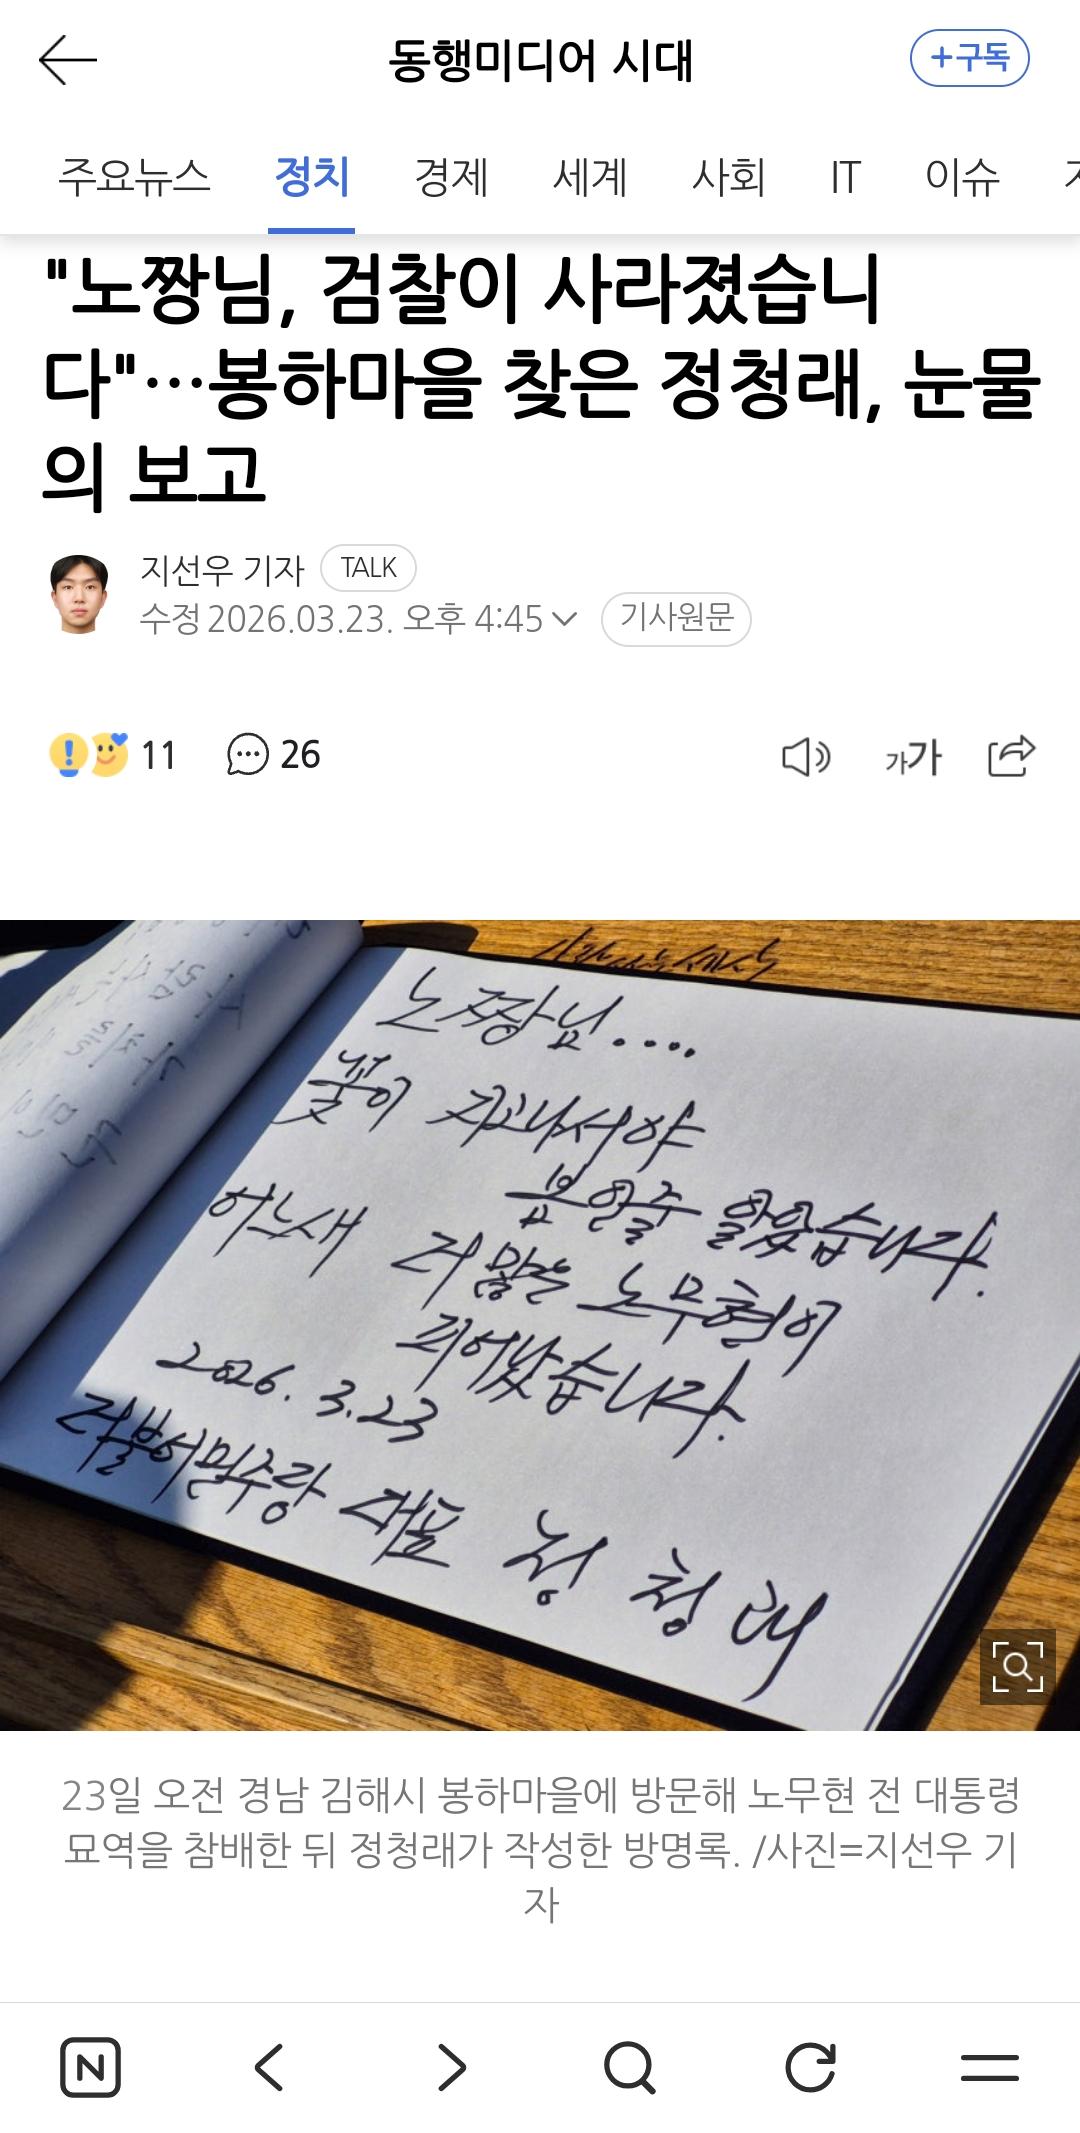 동행미디어 시대
+구독
주요뉴스 정치 경제 세계 사회 IT 이슈
"노짱님, 검찰이 사라졌습니
다"…봉하마을 찾은 정청래, 눈물
의 보고
지선우 기자 TALK
수정 2026.03.23. 오후 4:45 기사원문
11 26 가가
노짱님....
꽃이 지고나서야
봄인줄 알았습니다.
어느새 더 많은 노무현이
피어났습니다.
2026. 3.23
더불어민주당 대표 정청래
23일 오전 경남 김해시 봉하마을에 방문해 노무현 전 대통령
묘역을 참배한 뒤 정청래가 작성한 방명록. /사진=지선우 기
자
N